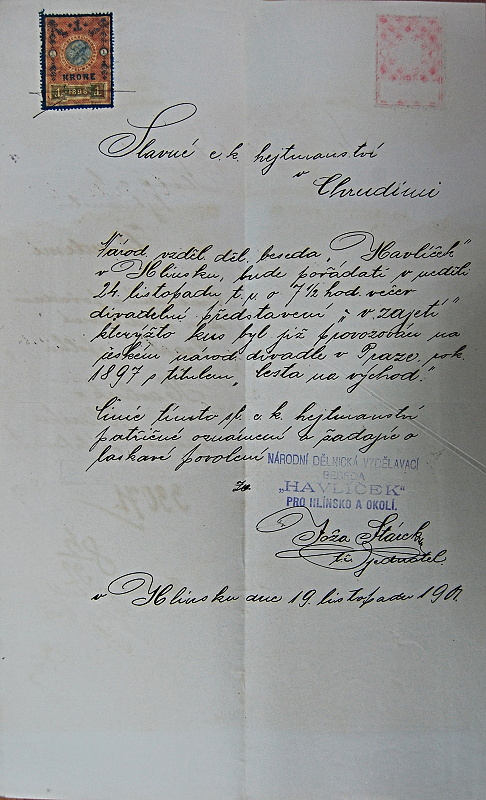 1
KRONE
1 1898 1
Slavné c. k. hejtmanství
v
Chrudimi
Národ. vzděl. děl. beseda „Havlíček"
v Hlinsku, bude pořádati v neděli
24. listopadu t. r. o 7 1/2 hod. večer
divadelní představení „v zajetí"
kterýžto kus byl již provozován na
českém národ. divadle v Praze, rok.
1897 s titulem „Cesta na východ."
Činíc tímto sl. c. k. hejtmanství
patřičné oznámení a žádajíc o
laskavé povolení
NÁRODNÍ DĚLNICKÁ VZDĚLAVACÍ
BESEDA
„HAVLÍČEK"
PRO HLÍNSKO A OKOLÍ.
za
Joža Stárek
t. č. jednatel
v Hlinsku dne 19. listopadu 1901